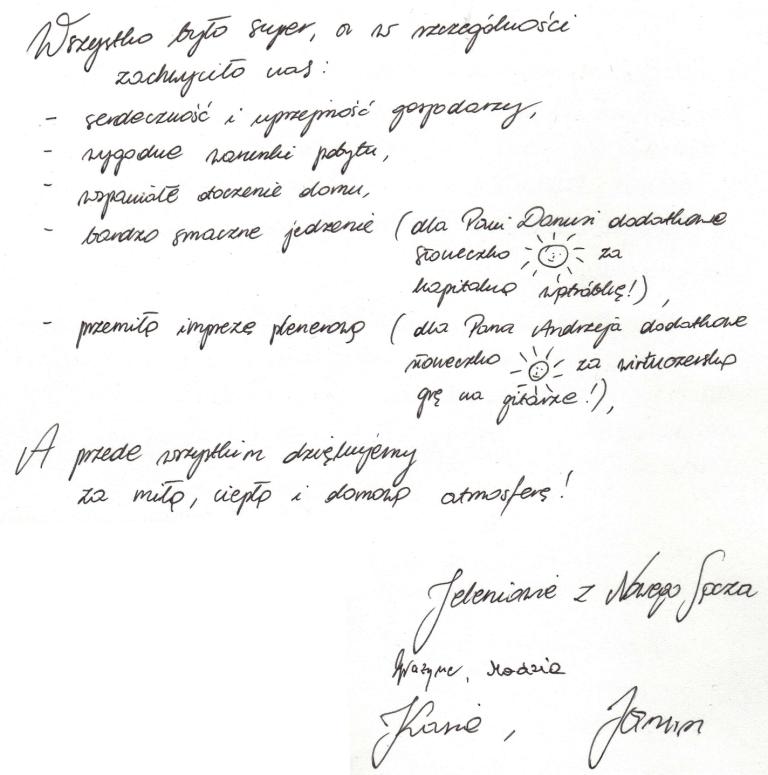 Wszystko było super, a w szczególności
zachwyciło nas:
- serdeczność i uprzejmość gospodarzy,
- wygodne warunki pobytu,
- wspaniałe otoczenie domu,
- bardzo smaczne jedzenie (dla Pani Danusi dodatkowe
słoneczko za
kapitalną wątróbkę!),
- przemiłą imprezę plenerową (dla Pana Andrzeja dodatkowe
słoneczko za wirtuozerską
grę na gitarze!),
A przede wszystkim dziękujemy
za miłą, ciepłą i domową atmosferę!
Jeleniowie z Nowego Sącza
Grażyna, Madzia
Kasia,